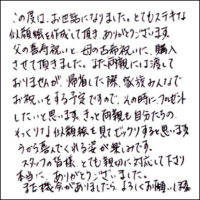 この度は、お世話になりました。とてもステキな
似顔絵を作成して頂き、ありがとうございます。
父の喜寿祝いと、母の古希祝いに、購入
させて頂きました。まだ両親には渡して
おりませんが、帰省した際、家族みんなで
お祝いをする予定ですので、その時にプレゼント
したいと思います。きっと両親も自分たちの
そっくりな似顔絵を見てビックリすると思います
今から喜んでくれる姿が楽しみです。
スタッフの皆様、とても親切に対応して下さり
本当に、ありがとうございました。
また機会がありましたら、よろしくお願いします。